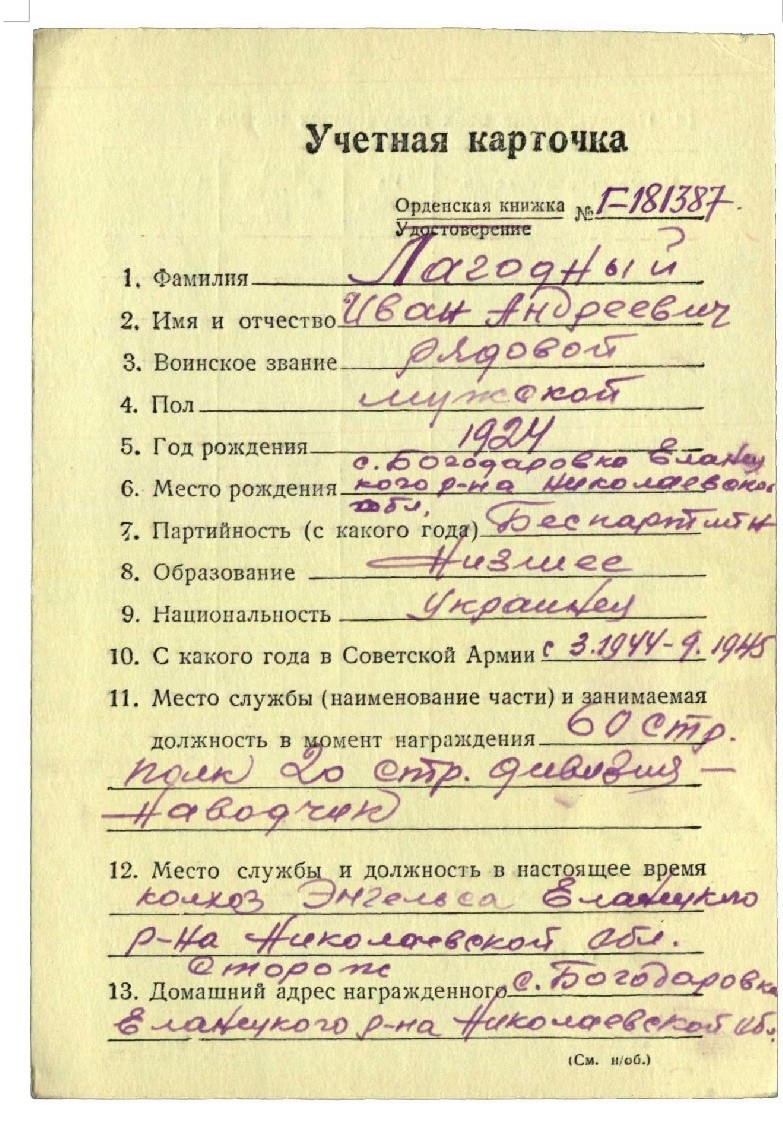 Учетная карточка
Орденская книжка № Г-181387.
Удостоверение
1. Фамилия Лагодный
2. Имя и отчество Иван Андреевич
3. Воинское звание рядовой
4. Пол мужской
5. Год рождения 1924
с. Богодаровка Еланец
6. Место рождения кого р-на Николаевской
обл.
7. Партийность (с какого года) Беспартийн
8. Образование Низшее
9. Национальность украинец
10. С какого года в Советской Армии с 3.1944-9.1945
11. Место службы (наименование части) и занимаемая
должность в момент награждения 60 стр.
полк 20 стр. дивизия –
Наводчик
12. Место службы и должность в настоящее время
колхоз Энгельса Еланецкого
р-на Николаевской обл.
Сторож
13. Домашний адрес награжденного с. Богодаровка
Еланецкого р-на Николаевской обл.
(См. н/об.)